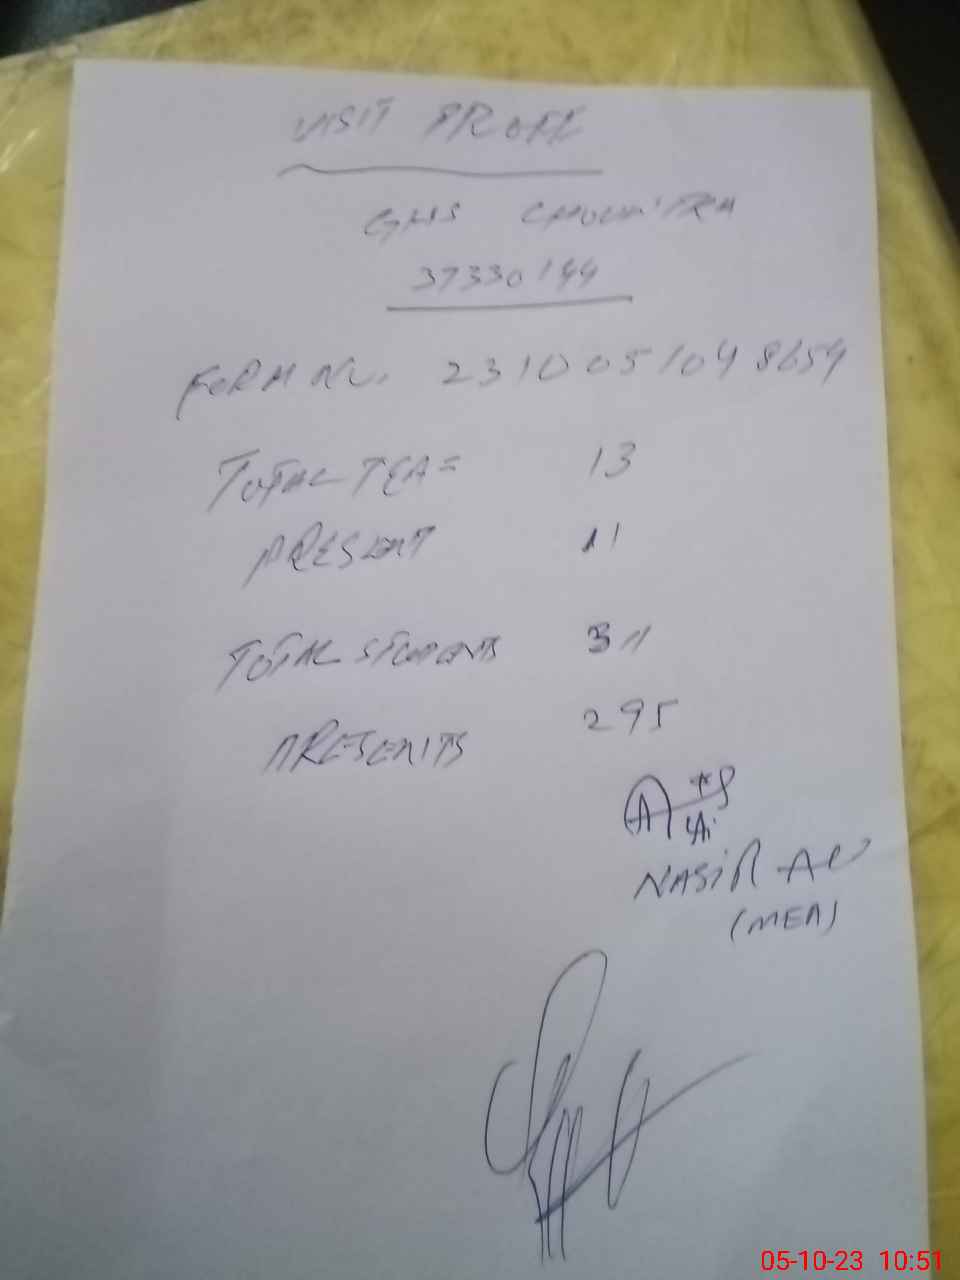 VISIT PROFE
GHS
37330144
FORM NO. 231005104 8654
TOTAL TEA = 13
PRESENT 11
TOTAL STUDENTS 311
PRESENTS 295
NASIR ALI
(MEA)
05-10-23 10:51